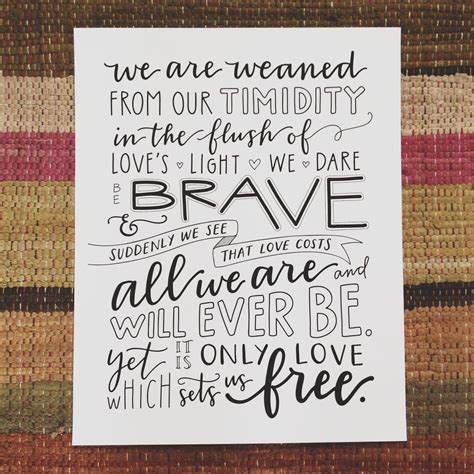 we are weaned
FROM OUR TIMIDITY
in the flush of
LOVE'S LIGHT WE DARE
BE BRAVE
& SUDDENLY WE SEE
THAT LOVE COSTS
all we are and
WILL EVER BE.
yet IT IS ONLY LOVE
WHICH sets us free.